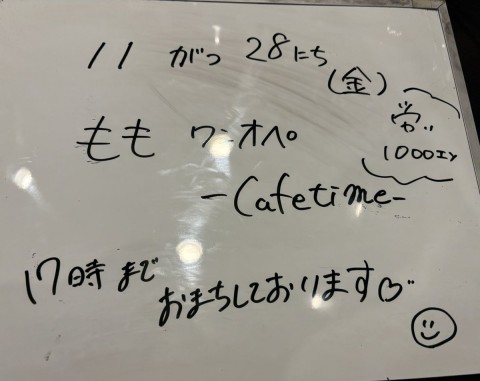 11 がつ 28にち
(金)
もも ワンオペ
1000エン
-Cafetime-
17時まで
おまちしております♡